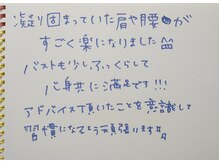 凝り固まっていた肩や腰が
すごく楽になりました
バストも少しふっくらして
心身共に満足です!!!
アドバイス頂いたことを意識して
習慣になるよう頑張ります